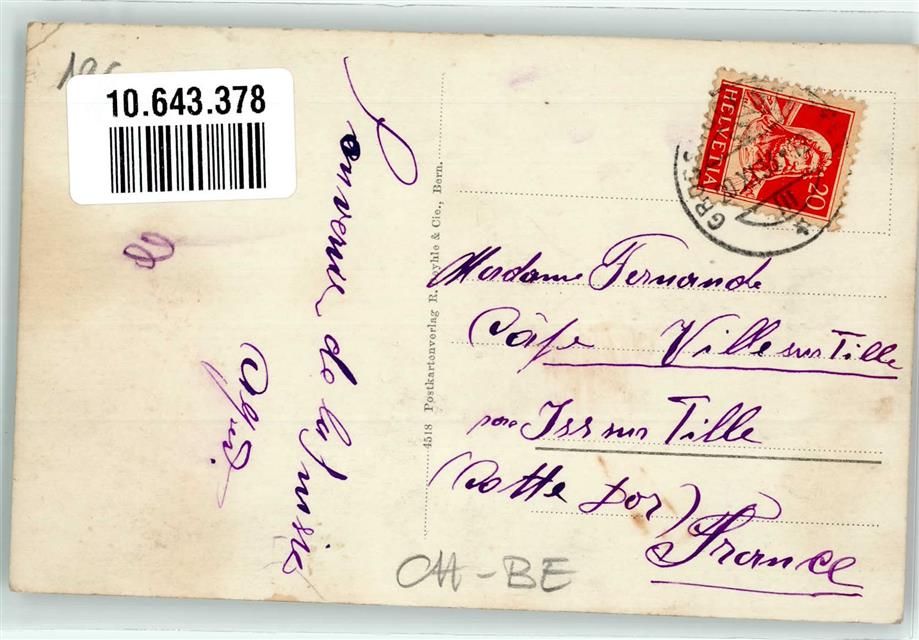 10.643.378
Souvenir de la Suisse
4518 Postkartenverlag R. Deyhle & Cie., Bern.
HELVETIA
20
Madame Fernande
Câfe Ville sur Tille
par Iss sur Tille
(Cotte Dor)
France
CH-BE